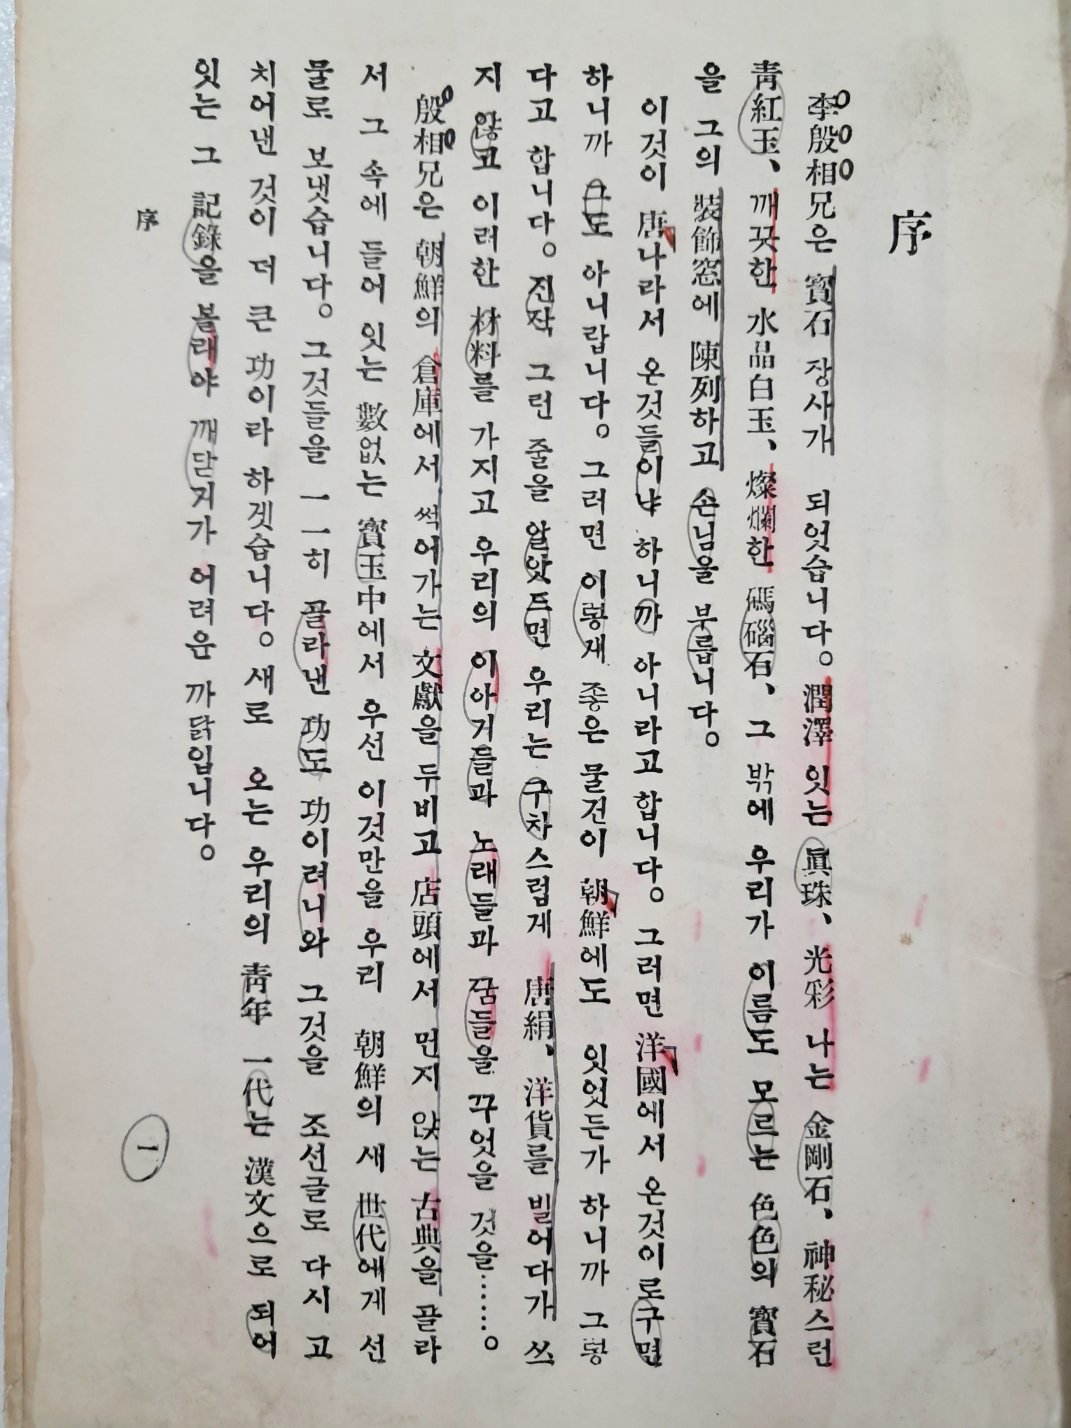 序
李殷相兄은 寶石 장사가 되엇습니다。潤澤 잇는 眞珠、光彩 나는 金剛石、神秘스런
靑紅玉、깨끗한 水晶白玉、燦爛한 碼碯石、그 밖에 우리가 이름도 모르는 色色의 寶石
을 그의 裝飾窓에 陳列하고 손님을 부릅니다。
이것이 唐나라서 온것들이냐 하니까 아니라고 합니다。그러면 洋國에서 온것이로구면
하니까 그도 아니랍니다。그러면 이렇게 좋은 물건이 朝鮮에도 잇엇든가 하니까 그렇
다고 합니다。진작 그런 줄을 알앗드면 우리는 구차스럽게 唐絹、洋貨를 빌어다가 쓰
지 않고 이러한 材料를 가지고 우리의 이야기들과 노래들과 꿈들을 꾸엇을 것을……。
殷相兄은 朝鮮의 倉庫에서 썩어가는 文獻을 두비고 店頭에서 먼지 앉는 古典을 골라
서 그 속에 들어 잇는 數없는 寶玉中에서 우선 이것만을 우리 朝鮮의 새 世代에게 선
물로 보냇습니다。그것들을 一一히 골라낸 功도 功이려니와 그것을 조선글로 다시 고
치어낸 것이 더 큰 功이라 하겟습니다。새로 오는 우리의 靑年 一代는 漢文으로 되어
잇는 그 記錄을 볼래야 깨닫기가 어려운 까닭입니다。
序
一